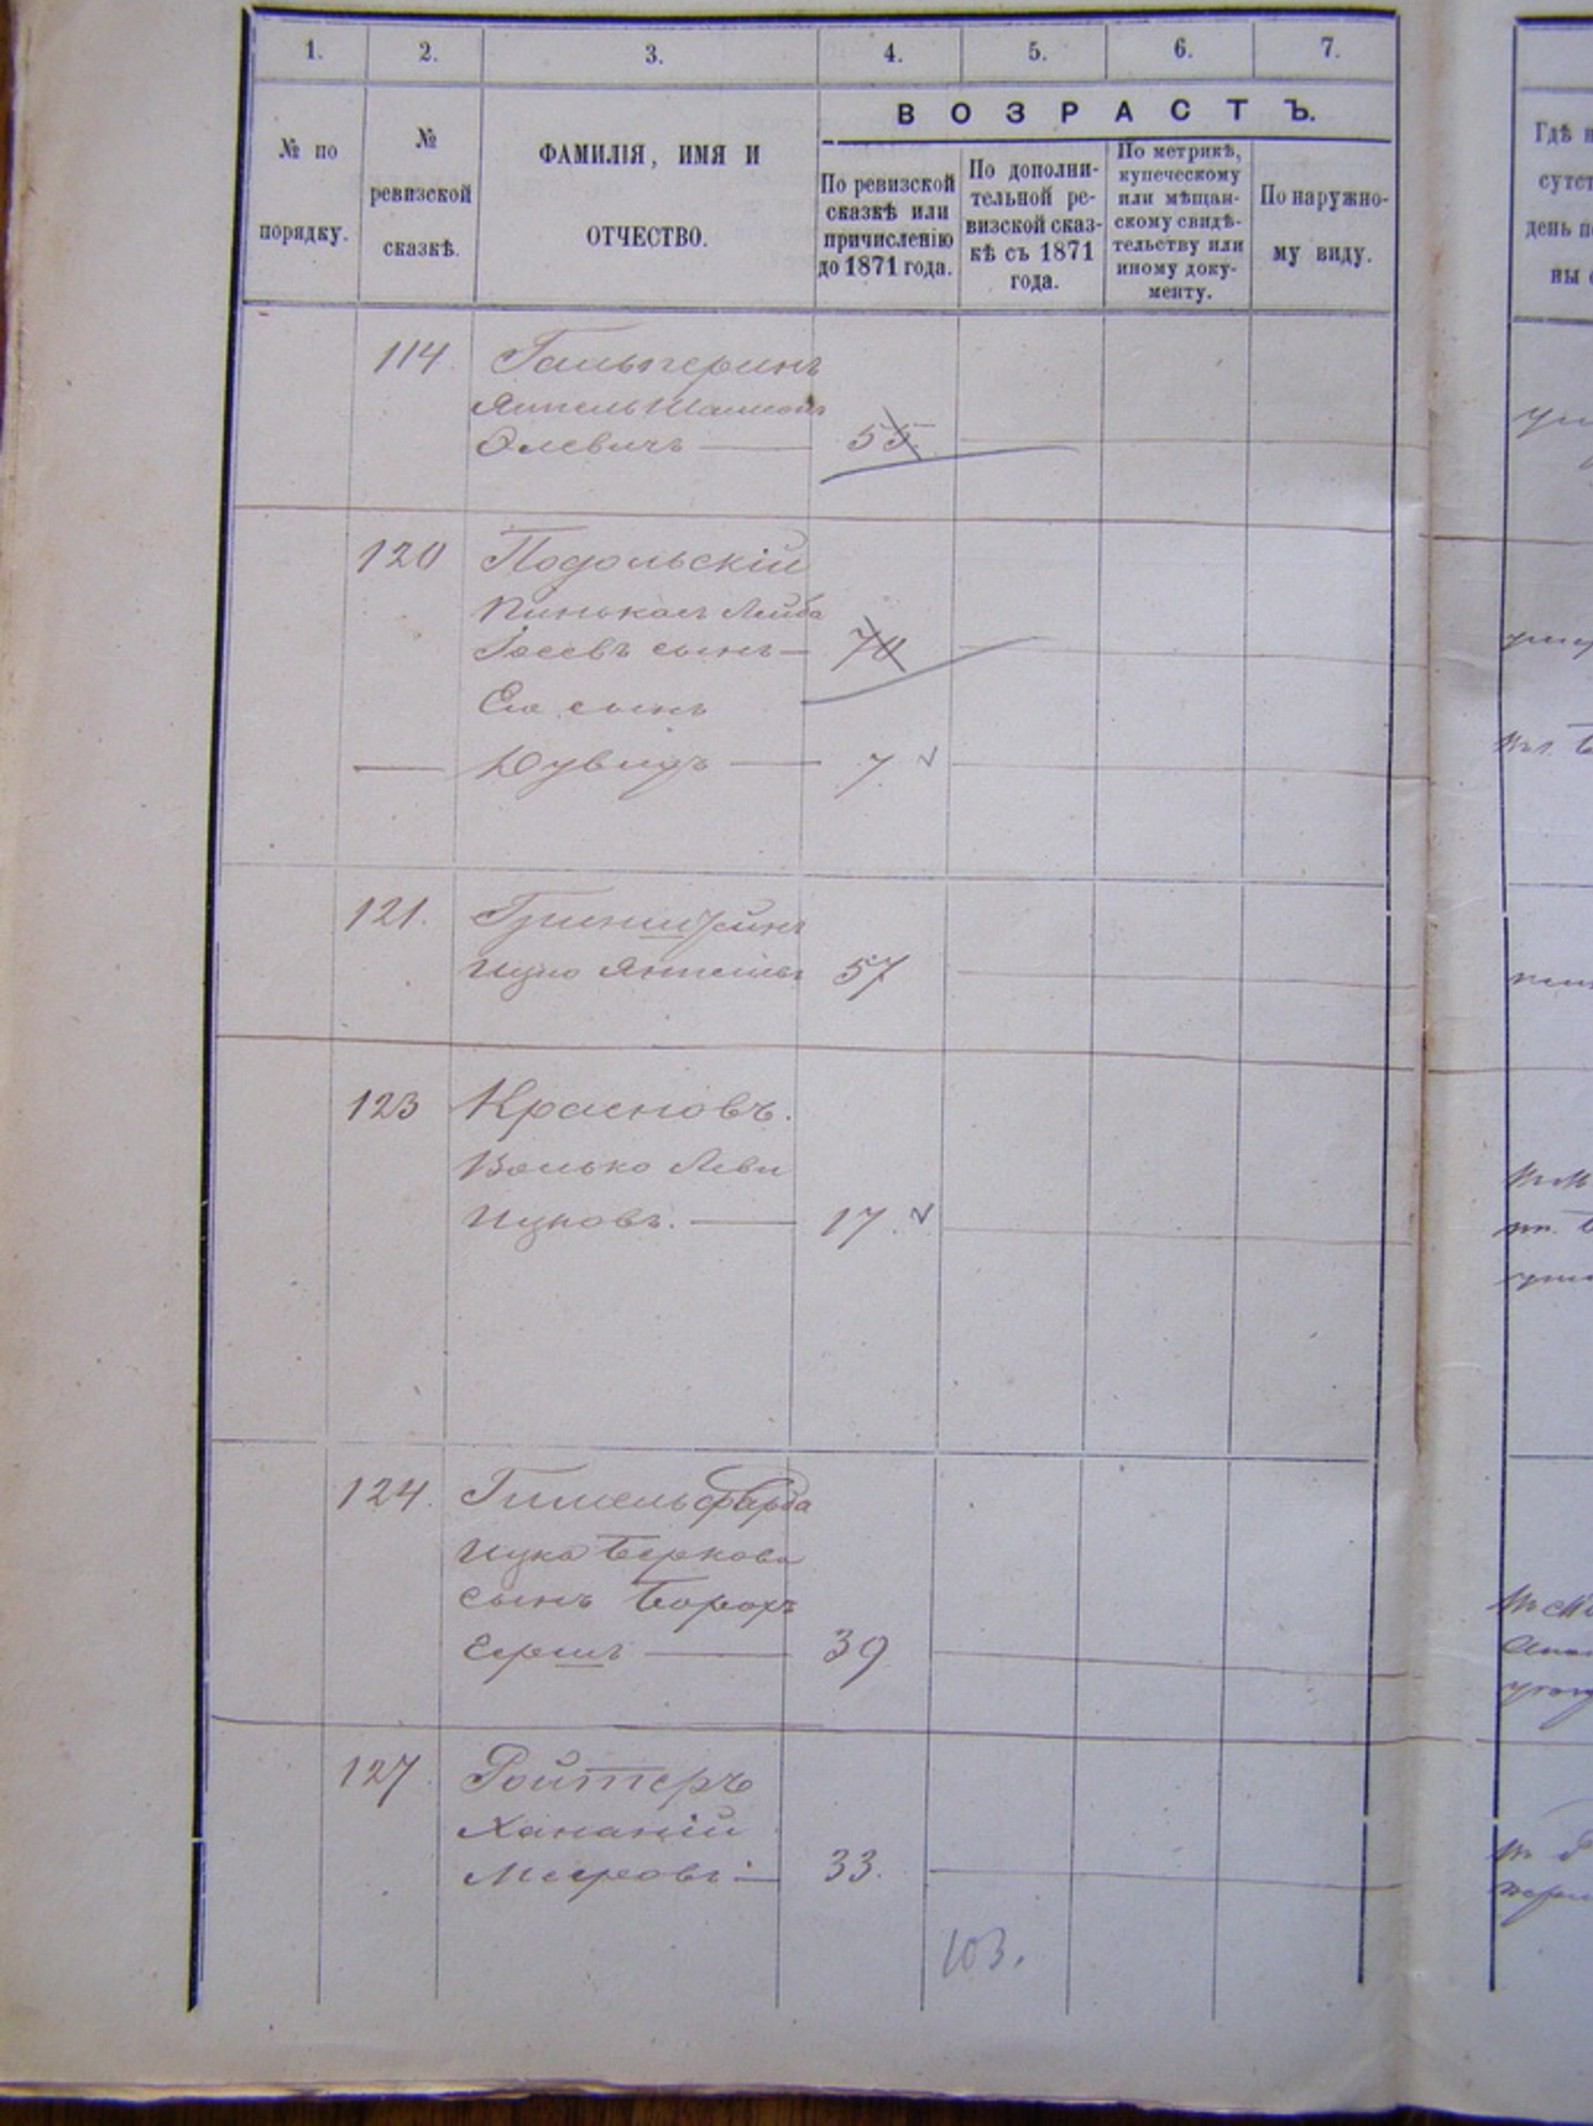 1. 2. 3. 4. 5. 6. 7.
№ по порядку.
№ ревизской сказкѣ.
ФАМИЛІЯ, ИМЯ И
ОТЧЕСТВО.
ВОЗРАСТЪ.
По ревизской
сказкѣ или
причисленію
до 1871 года.
По дополни-
тельной ре-
визской сказ-
кѣ съ 1871
года.
По метрикѣ,
купеческому
или мѣщан-
скому свидѣ-
тельству или
иному доку-
менту.
По наружно-
му виду.
114. Гальперинъ
Янкель
Олевичъ — 55.
120 Подольскій
Пинькасъ Лейба
Іосевъ сынъ — 70
Его сынъ
— Дувидъ — 7
121. Гринштейнъ
Ицко Янкелевъ 57
123 Красновъ.
Волько Леви
Ицковъ. — 17.
124. Гимельфарба
Ицка Беркова
сынъ Борохъ
Гершъ — 39
127 Ройтеръ
Хананій
Мееровъ — 33.
103.